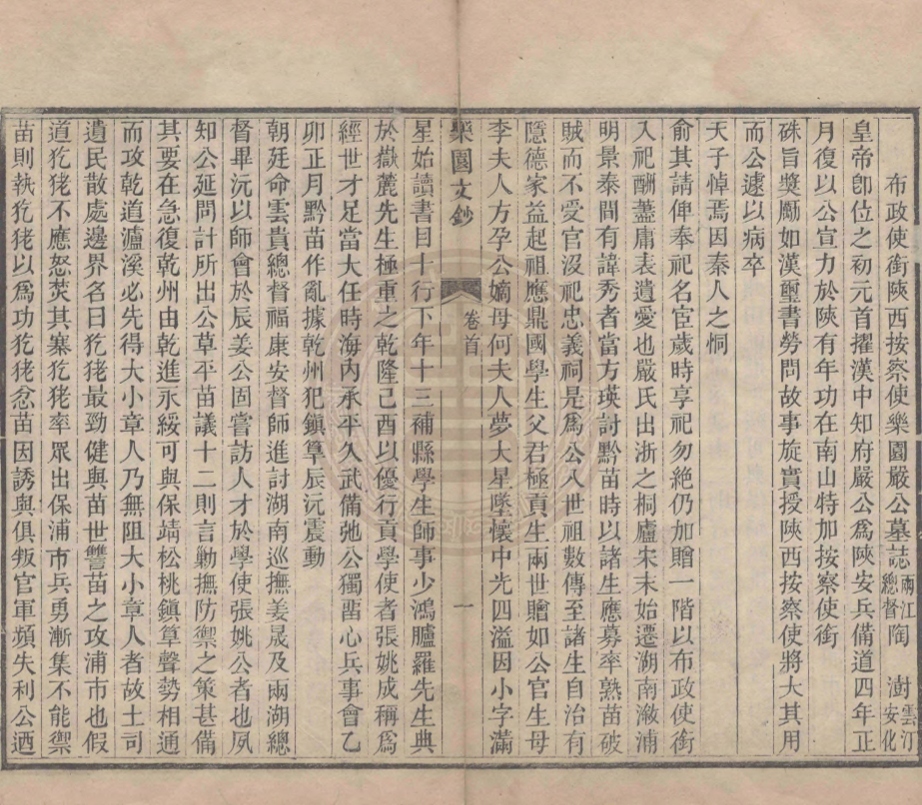 布政使銜陝西按察使樂園嚴公墓誌 兩江總督陶 澍 雲汀安化
皇帝卽位之初元首擢漢中知府嚴公爲陝安兵備道四年正
月復以公宣力於陝有年功在南山特加按察使銜
硃旨獎勵如漢璽書勞問故事旋實授陝西按察使將大其用
而公遽以病卒
天子悼焉因秦人之恫
俞其請俾奉祀名宦歲時享祀勿絶仍加贈一階以布政使銜
入祀酬藎庸表遺愛也嚴氏出浙之桐廬宋末始遷湖南漵浦
明景泰間有諱秀者當方瑛討黔苗時以諸生應募率熟苗破
賊而不受官沒祀忠義祠是爲公八世祖數傳至諸生自治有
隱德家益起祖應鼎國學生父君極貢生兩世贈如公官生母
李夫人方孕公嫡母何夫人夢大星墜懷中光四溢因小字滿
樂園文鈔 卷首 一
星始讀書目十行下年十三補縣學生師事少鴻臚羅先生典
於嶽麓先生極重之乾隆己酉以優行貢學使者張姚成稱爲
經世才足當大任時海内承平久武備弛公獨畱心兵事會乙
卯正月黔苗作亂據乾州犯鎭筸辰沅震動
朝廷命雲貴總督福康安督師進討湖南巡撫姜晟及兩湖總
督畢沅以師會於辰姜公固嘗訪人才於學使張姚公者也夙
知公延問計所出公草平苗議十二則言勦撫防禦之策甚備
其要在急復乾州由乾進永綏可與保靖松桃鎭筸聲勢相通
而攻乾道瀘溪必先得大小章人乃無阻大小章人者故土司
遺民散處邊界名曰犵狫最勁健與苗世讐苗之攻浦市也假
道犵狫不應怒焚其寨犵狫率眾出保浦市兵勇漸集不能禦
苗則執犵狫以爲功犵狫忿苗因誘與俱叛官軍頻失利公迺